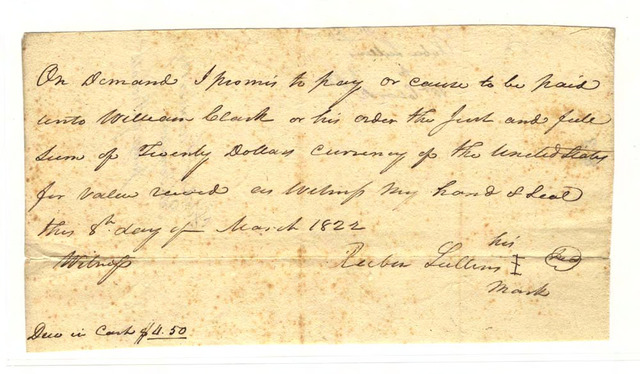 On Demand I promis to pay or cause to be paid
unto William Clark or his order the Just and full
Sum of Twenty Dollars Currency of the United States
for Value received as Witness My hand & Seal
this 8th day of March 1822
his
Witness Reuben Sullens I Seal
Mark
Dew in Cash $4.50